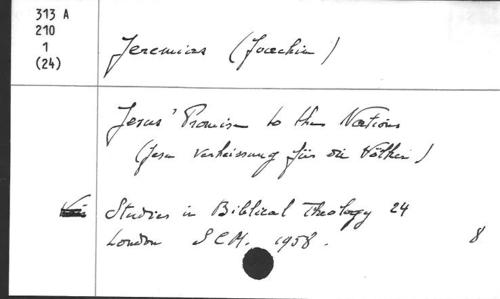 313 A
210
1
(24)
Jeremias (Joachim)
Jesus' Promise to the Nations
(Jesu Verheissung für die Völker)
Studies in Biblical Theology 24
London SCM. 1958. 8